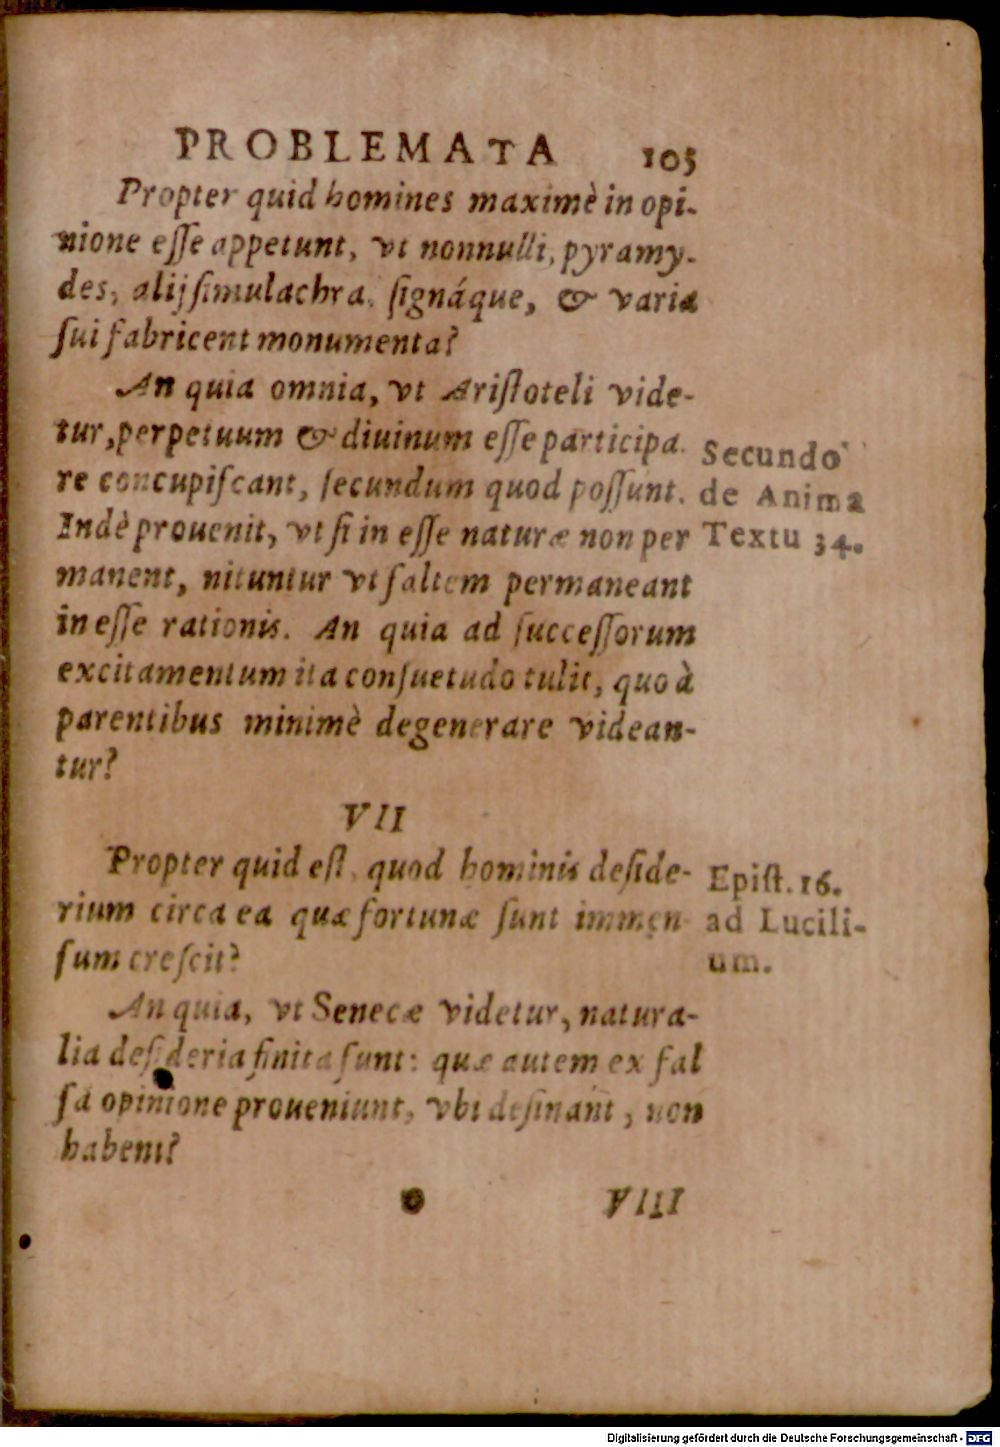 PROBLEMATA 105
Propter quid homines maximè in opi-
nione eſſe appetunt, vt nonnulli, pyramy-
des, alij ſimulachra, ſignáque, & varia
ſui fabricent monumenta?
An quia omnia, vt Ariſtoteli vide-
tur, perpetuum & diuinum eſſe participa-
re concupiſcant, ſecundum quod poſſunt.
Indè prouenit, vt ſi in eſſe naturæ non per
manent, nituntur vt ſaltem permaneant
in eſſe rationis. An quia ad ſucceſſorum
excitamentum ita conſuetudo tulit, quo à
parentibus minimè degenerare videan-
tur?
Secundo
de Anima
Textu 34.
VII
Propter quid eſt, quod hominis deſide-
rium circa ea quæ fortunæ ſunt immen
ſum creſcit?
Epiſt. 16.
ad Lucili-
um.
An quia, vt Senecæ videtur, natura-
lia deſideria finita ſunt: quæ autem ex fal
ſa opinione proueniunt, vbi deſinant, non
habent?
VIII
Digitalisierung gefördert durch die Deutsche Forschungsgemeinschaft - DFG